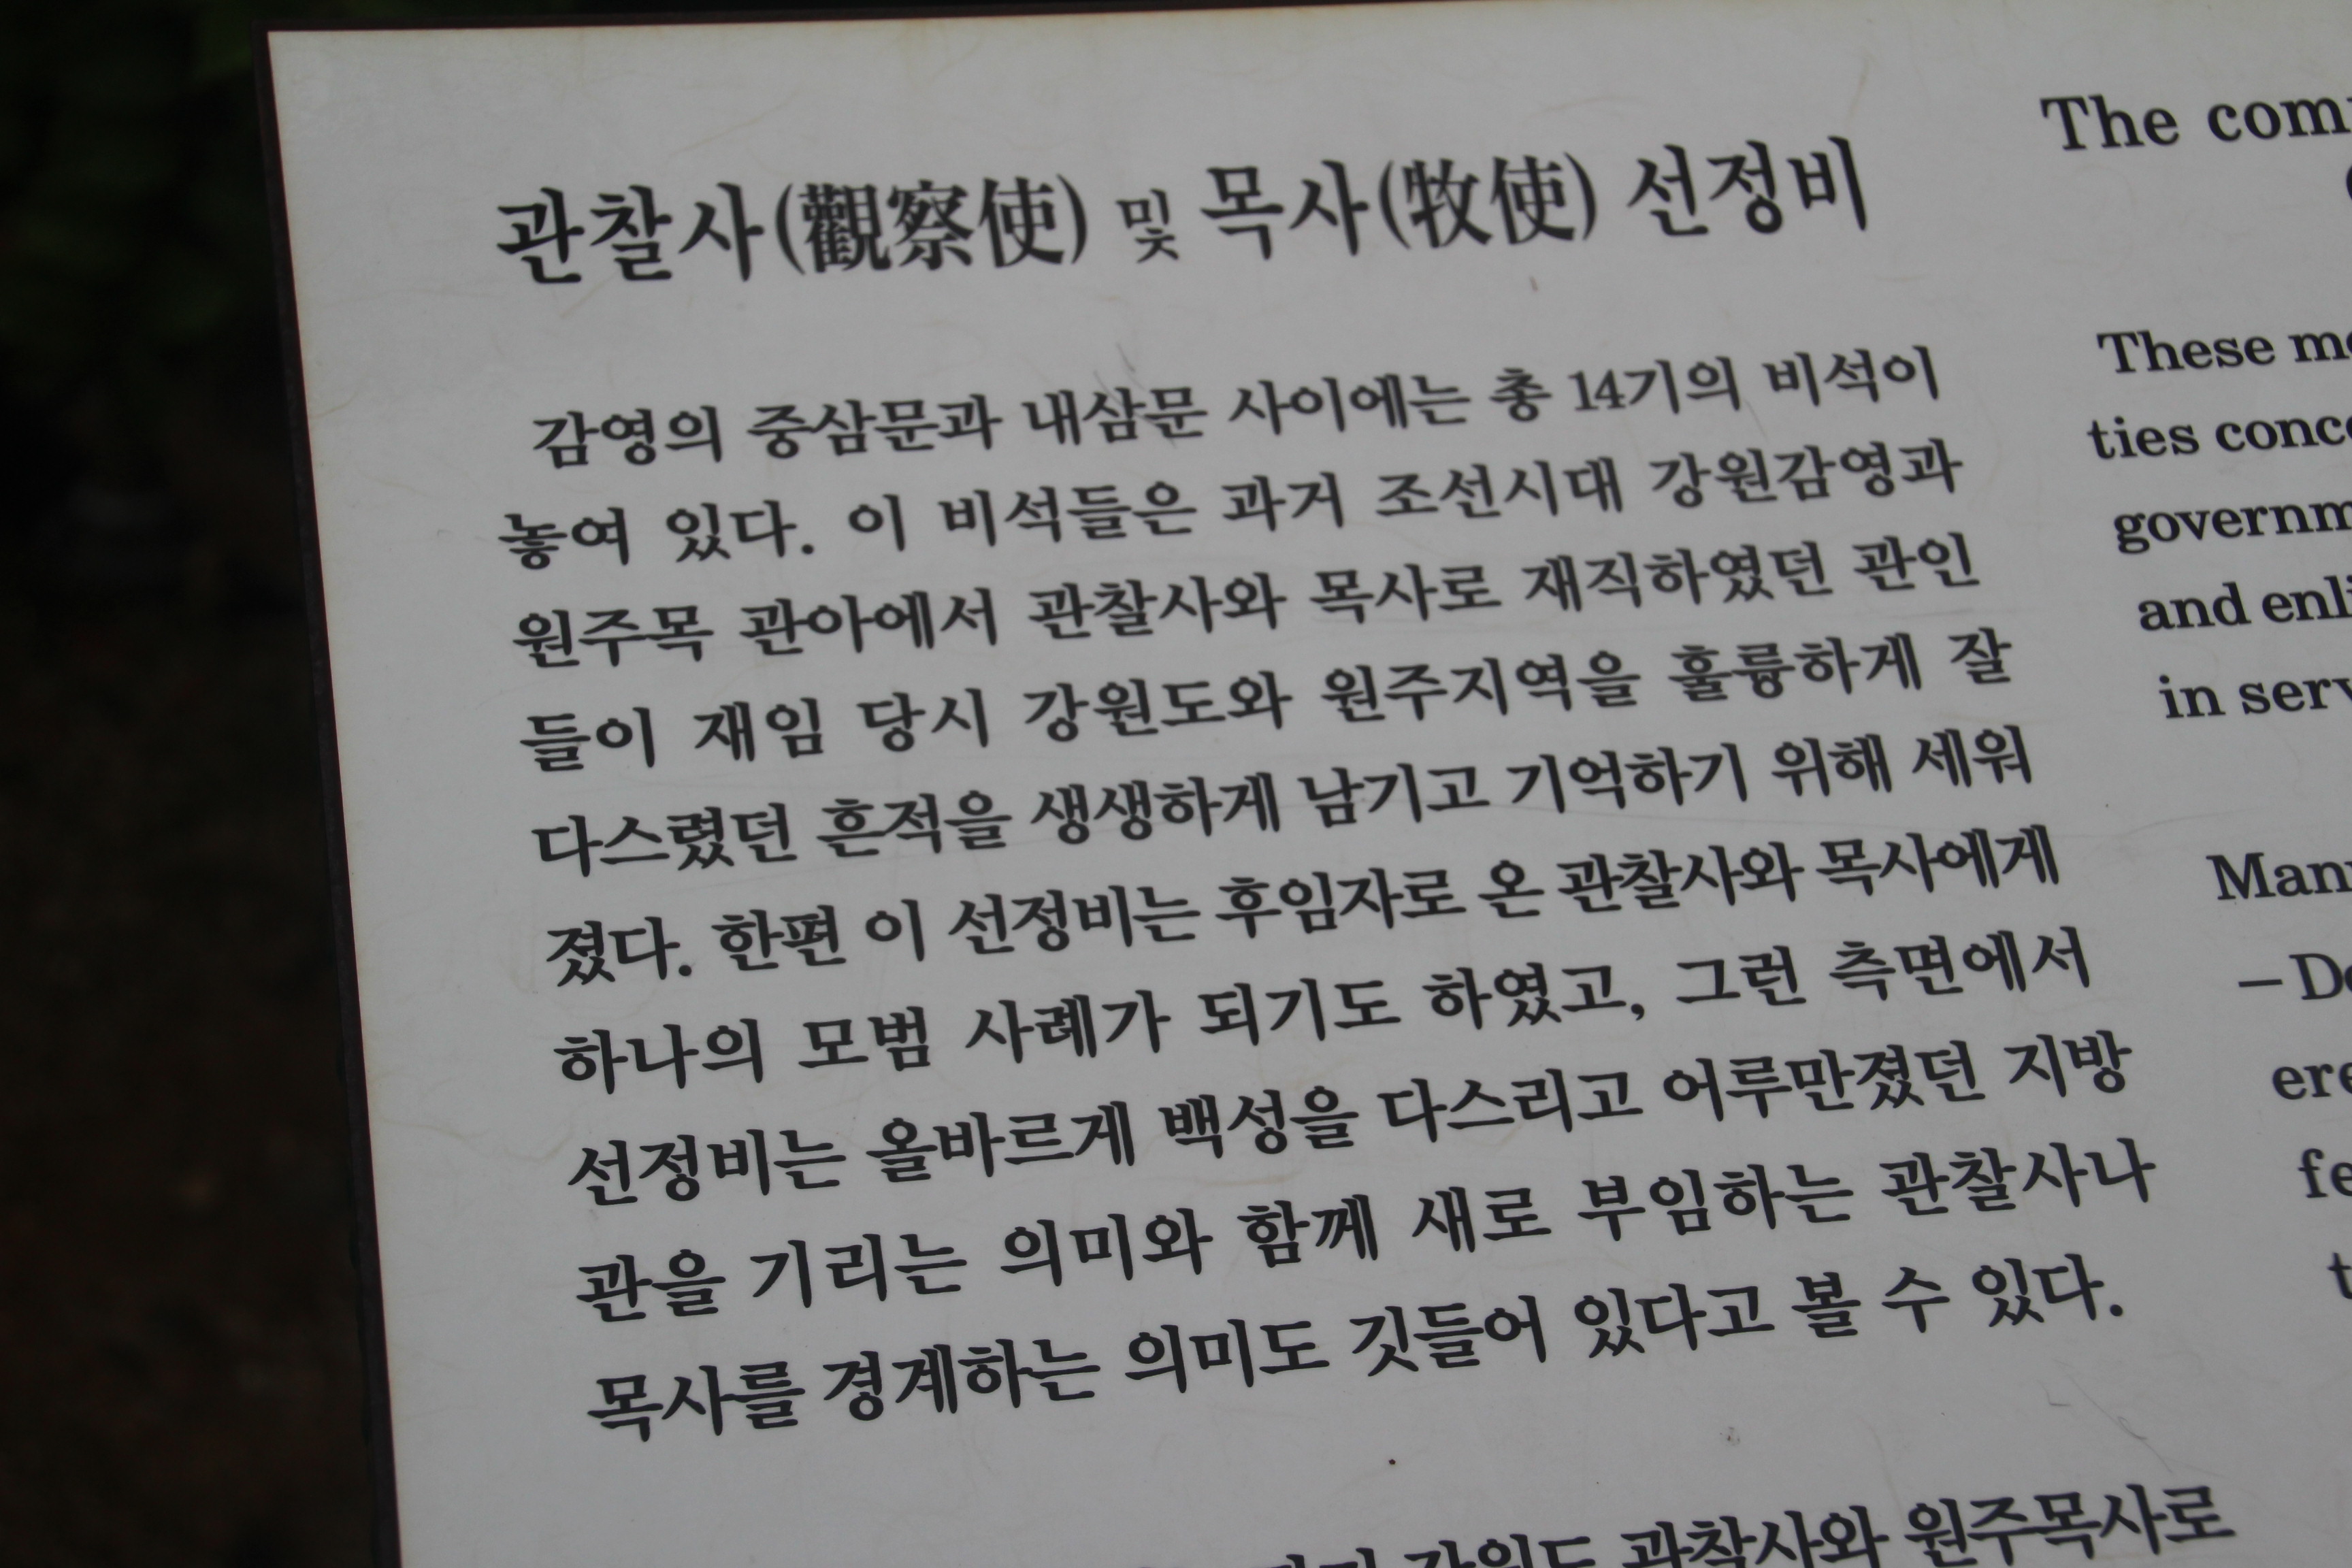 관찰사(觀察使) 및 목사(牧使) 선정비
감영의 중삼문과 내삼문 사이에는 총 14기의 비석이
놓여 있다. 이 비석들은 과거 조선시대 강원감영과
원주목 관아에서 관찰사와 목사로 재직하였던 관인
들이 재임 당시 강원도와 원주지역을 훌륭하게 잘
다스렸던 흔적을 생생하게 남기고 기억하기 위해 세워
졌다. 한편 이 선정비는 후임자로 온 관찰사와 목사에게
하나의 모범 사례가 되기도 하였고, 그런 측면에서
선정비는 올바르게 백성을 다스리고 어루만졌던 지방
관을 기리는 의미와 함께 새로 부임하는 관찰사나
목사를 경계하는 의미도 깃들어 있다고 볼 수 있다.
관찰사와 원주목사로
The
These
ties
and
in